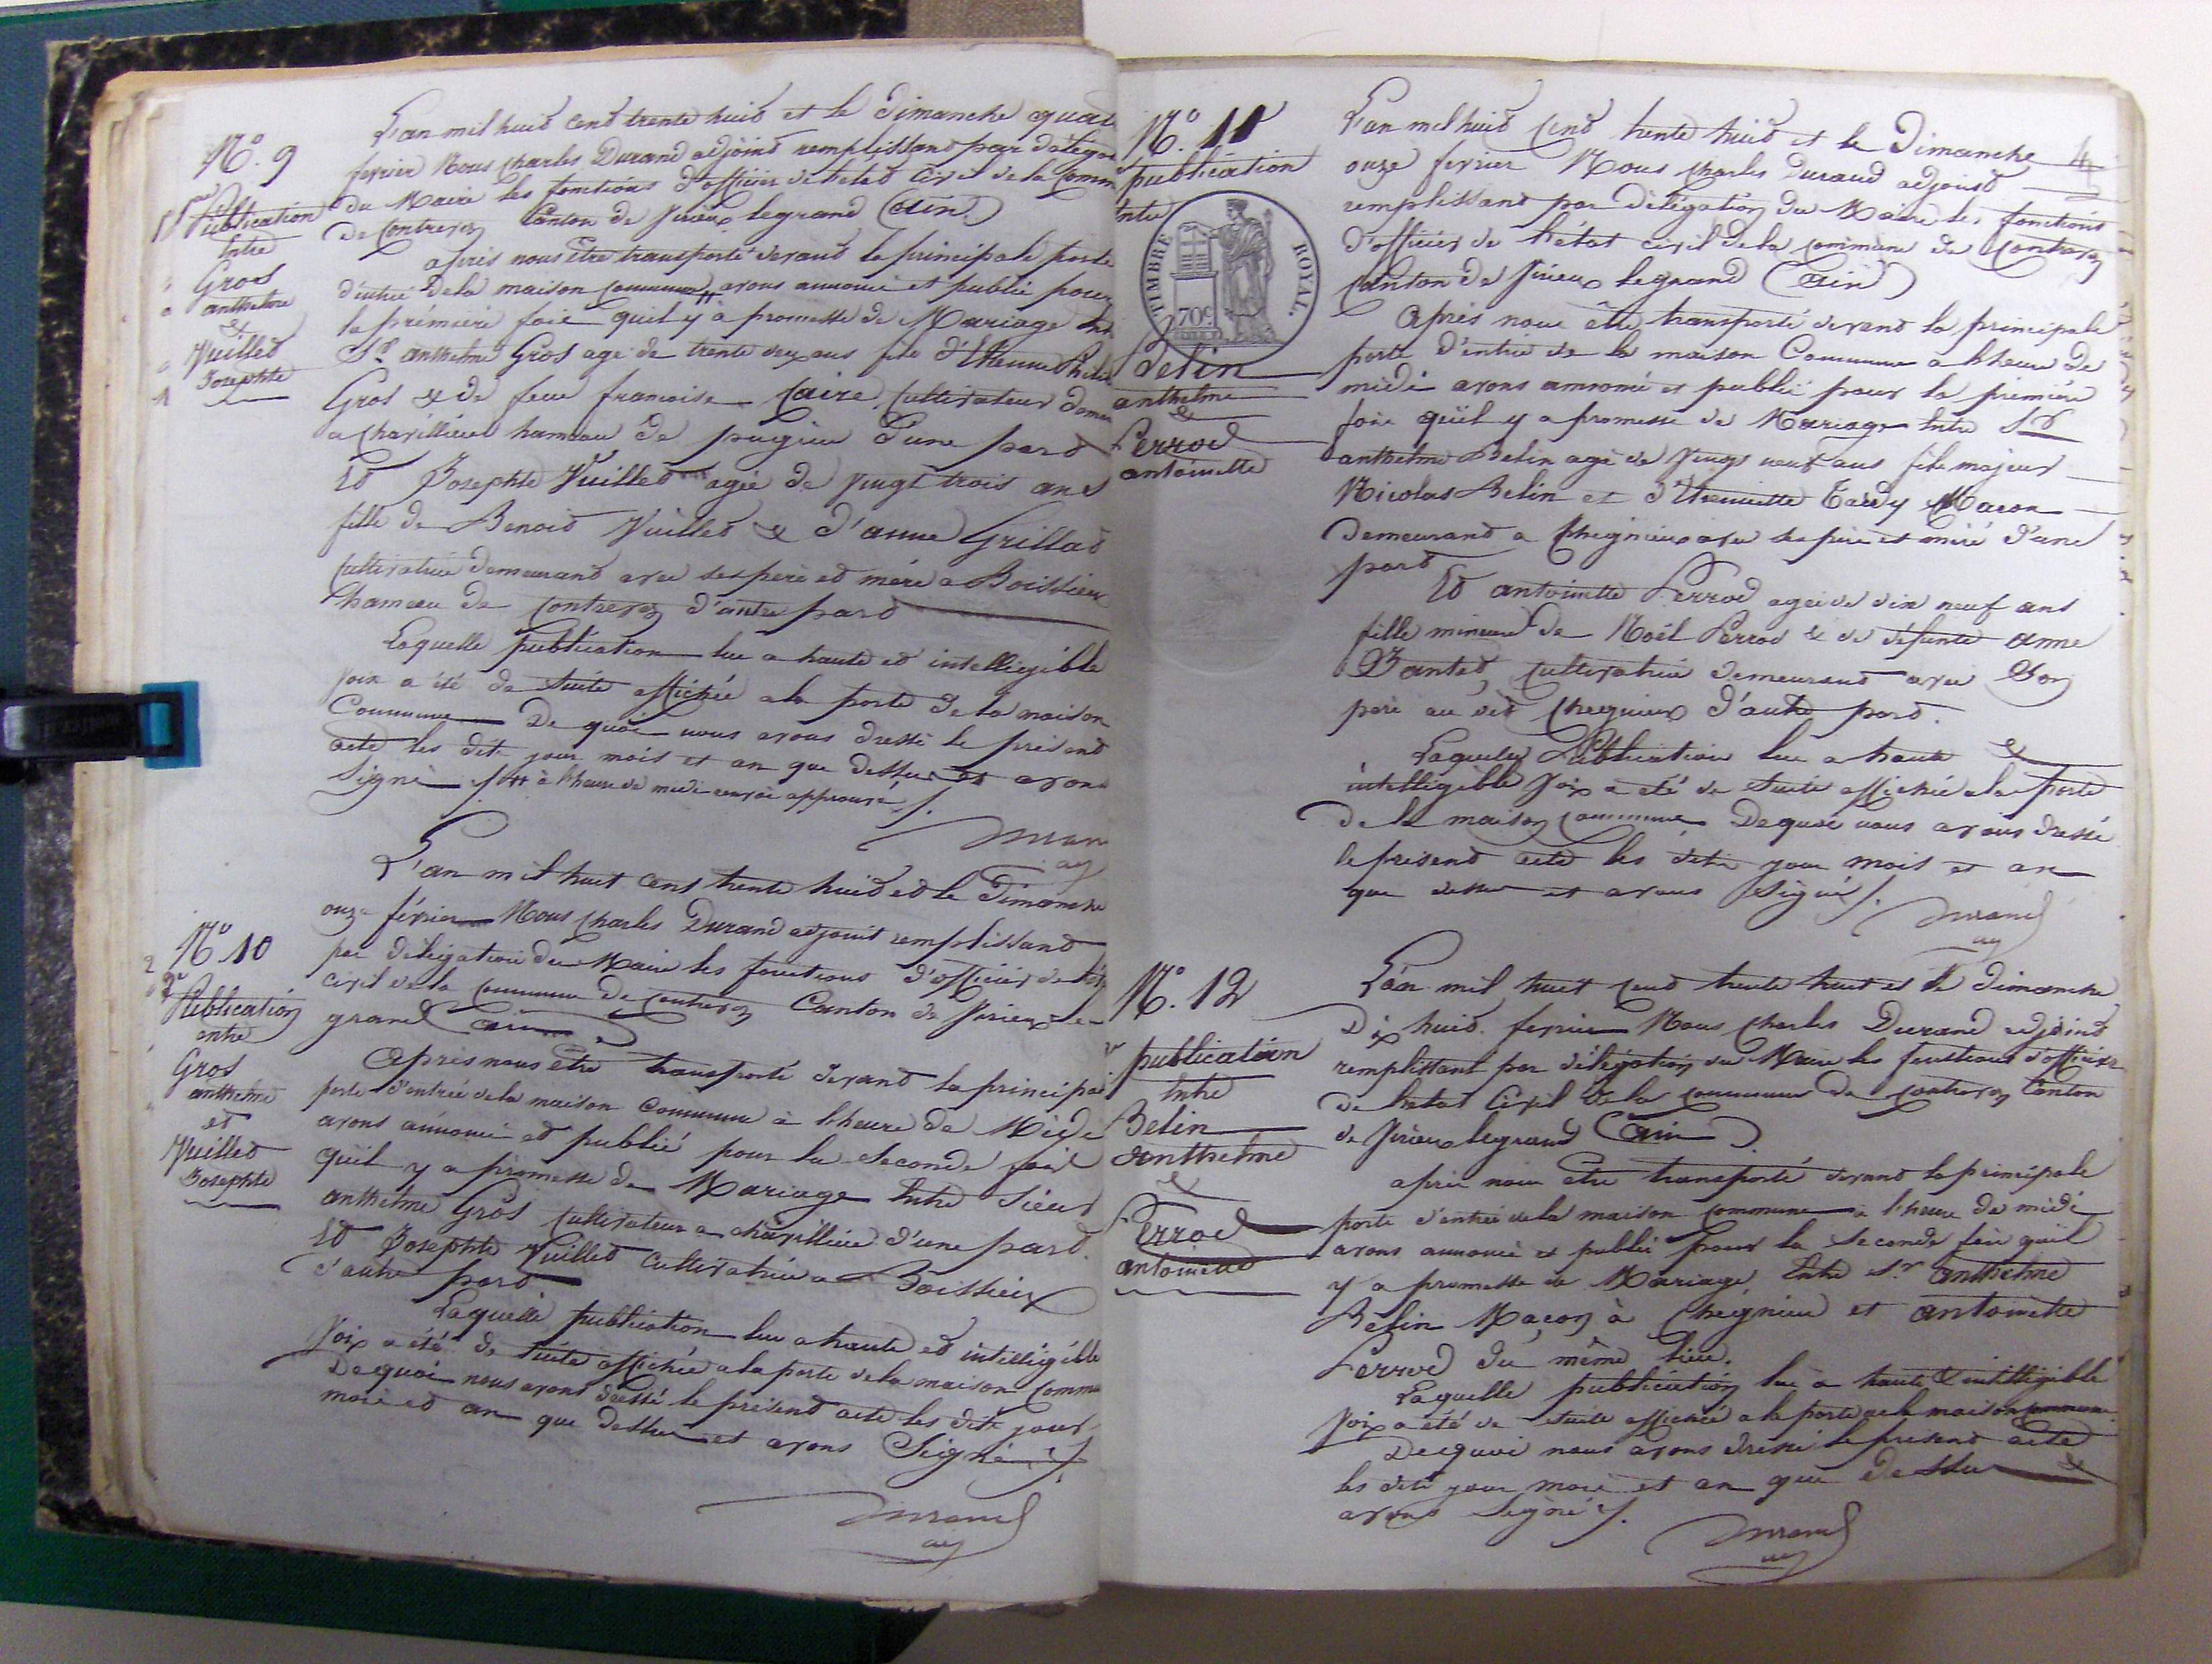 N.º 9
1re Publication
Entre
Gros
anthelme
&
Vuillet
Josephte
L'an mil huit cent trente huit et le Dimanche quat
fevrier Nous Charles Durand adjoint remplissant par délégat
du Maire les fonctions d'officier de l'etat civil de la Comm
de Contrevoz Canton de Virieux legrand (ain.)
après nous être transporté devant la principale porte
d'entrée de la maison commune, avons annoncé et publié pour
la première fois qu'il y à promesse de Mariage
Sr. anthelme Gros agé de trente deux ans fils d'Etienne
Gros & de feue francoise Caire, Cultivateur
a Charillieu hameau de pugieu d'une part
Et Josephte Vuillet agée de vingt trois ans
fille de Benoit Vuillet & d'anne Grillat
Cultivatrice demeurant avec ses pere et mère a Boissieux
hameau de Contrevoz d'autre part
Laquelle publication lue a haute et intelligible
voix a été de suite affichée a la porte de la maison
Commune De quoi nous avons dressé le présent
acte les dits jour mois et an que dessus et avons
signé /. à l'heure de midi renvoi approuvé /.
Durand
adj
N.º 10
2e
Publication
entre
Gros
anthelme
et
Vuillet
Josephte
L'an mil huit cent trente huit et le Dimanche
onze février Nous Charles Durand adjoint remplissant
par délégation du Maire les fonctions d'officier de
civil de la commune de contrevoz Canton de Virieux le
grand (ain)
Après nous être transporté devant la principa
porte d'entrée de la maison commune à l'heure de Midi
avons annoncé et publié pour la seconde fois
qu'il y a promesse de Mariage Entre Sieur
anthelme Gros cultivateur a charillieu d'une part.
Et Josephte Vuillet cultivatrice a Boissieux
d'autre part
Laquelle publication lue a haute et intelligible
voix a été de suite affichée a la porte de la maison Commu
Dequoi nous avons dressé le présent acte les dits jour
mois et an que dessus et avons Signé /.
Durand
adj
N.º 11
publication
Entre
TIMBRE ROYAL
70c
Belin
anthelme
&
Perrod
antoinette
4
L'an mil huit Cent trente huit et le Dimanche
onze fevrier Nous Charles Durand adjoint
remplissant par délégation du Maire les fonctions
d'officier de l'état civil de la commune de Contrevoz
Canton de Virieux legrand (ain)
Après nous être transporté devant la principale
porte d'entrée de la maison Commune a l'heure de
midi avons annoncé et publié pour la première
fois qu'il y a promesse de Mariage Entre Sr
anthelme Belin agé de vingt neuf ans fils majeur
Nicolas Belin et d'Etiennette Tardy Maçon
Demeurant a Cheignieux avec ses père et mère d'une
part
Et antoinette Perrod agée de dix neuf ans
fille mineure de Noël Perrod & de défunte anne
cultivatrice demeurant avec Son
père au dit Cheignieux d'autre part.
Laquelle Publication lue a haute &
intelligible Voix a été de suite affichée a la porte
de la maison commune Dequoi nous avons dressé
le présent acte les dits jour mois et an
que dessus et avons Signé /.
Durand
adj
N.º 12
2e
publication
Entre
Belin
anthelme
&
Perrod
antoinette
L'an mil huit cent trente huit et le dimanche
Dix huit fevrier Nous Charles Durand adjoint
remplissant par délégation du Maire les fonctions d'officier
de l'etat Civil de la commune de contrevoz Canton
de Virieux legrand (ain)
après nous être transporté devant la principale
porte d'entrée de la maison commune a l'heure de midi
avons annoncé et publié pour la seconde fois qu'il
y a promesse de Mariage Entre Sr anthelme
Belin Maçon à Cheignieu et antoinette
Perrod du même lieu.
Laquelle publication lue à haute & intelligible
Voix a été de suite affichée a la porte de la maison commune.
Dequoi nous avons dressé le présent acte
les dits jour mois et an que dessus &
avons Signé /.
Durand
adj